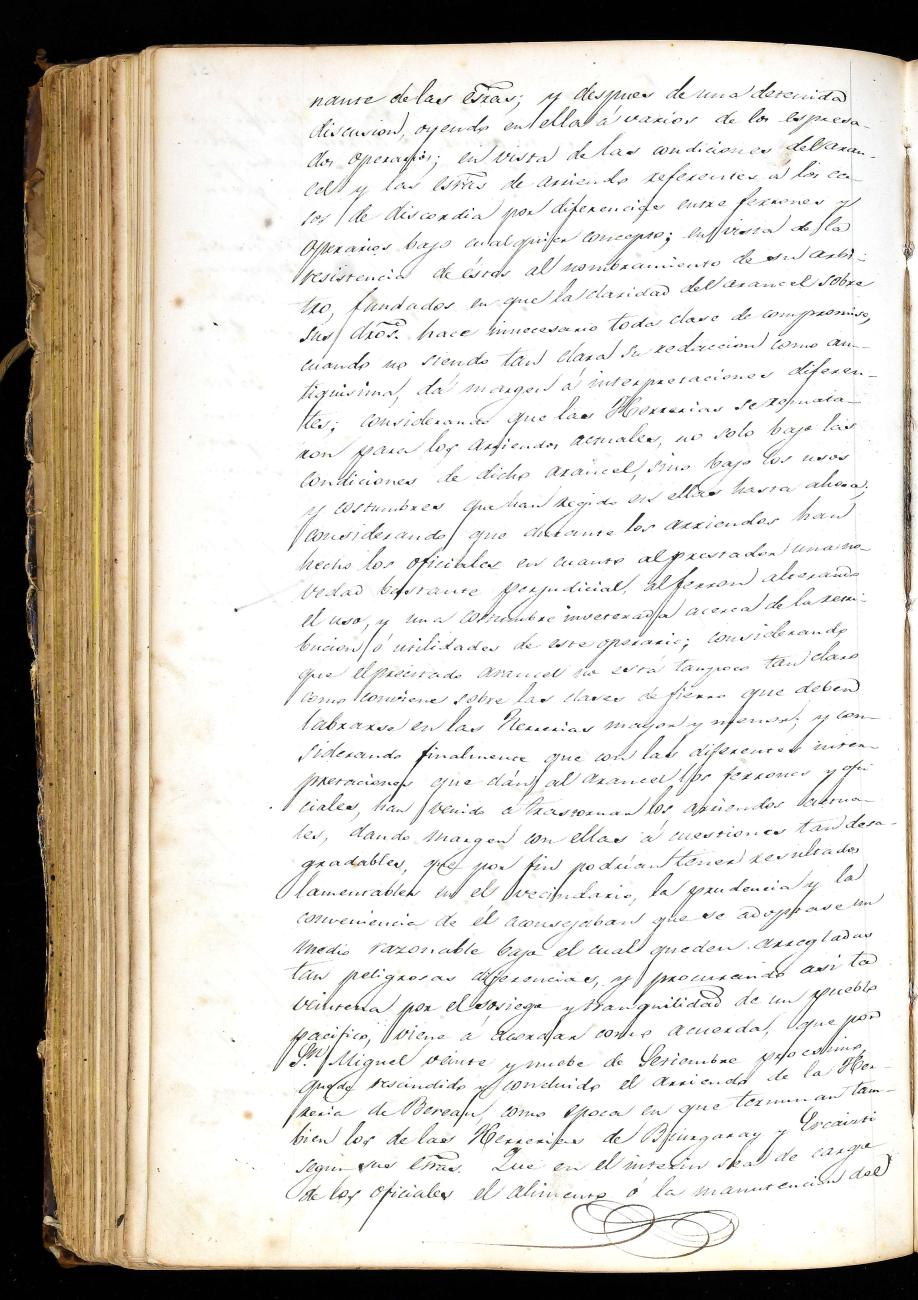 nante de las essras; y despues de una detenida
discusion, oyendo en ella á varios de los espresa-
dos operarios; en vista de las condiciones del aran-
cel y las essras de arriendo referentes á los ca-
sos de discordia por diferencias entre ferrones y
operarios bajo cualquier concepto; en vista de la
resistencia de éstos al nombramiento de su árbi-
tro, fundados en que la claridad del arancel sobre
sus dros. hace innecesario toda clase de compromiso,
cuando no siendo tan clara su redaccion como an-
tiquisima, dá margen á interpretaciones diferen-
tes; considerando que las Herrerias se remata-
ron para los arriendos actuales, no solo bajo las
condiciones de dicho arancel, sino bajo los usos
y costumbres que han regido en ellas hasta ahora;
considerando que durante los arriendos han
hecho los oficiales en cuanto al prestador una no-
vedad bastante perjudicial al ferron alterando
el uso, y una costumbre inveterada acerca de la retri-
bucion ó utilidades de este operario; considerando
que el precitado arancel no está tampoco tan claro
como conviene sobre las clases de fierro que deben
labrarse en las Herrerias mayor y menor; y con-
siderando finalmente que con las diferentes inter-
pretaciones que dán al arancel los ferrones y ofi-
ciales, han venido á trastornar los arriendos actua-
les, dando margen con ellas á cuestiones tan desa-
gradables, que por fin podrian tener resultados
lamentables en el vecindario, la prudencia y la
conveniencia de él aconsejaban que se adoptase un
medio razonable bajo el cual queden arregladas
tan peligrosas diferencias, y procurando asi la
veintena por el sosiego y tranquilidad de un pueblo
pacifico, viene á acordar como acuerda, que por
Sn. Miguel veinte y nuebe de Setiembre procsimo,
quede rescindido y concluido el arriendo de la Her-
reria de Berean, como epoca en que terminan tam-
bien los de las Herrerias de Ibiurgaray y Ercainti
segun sus essras. Que en el interin sea de cargo
de los oficiales el alimento ó la manutencion del